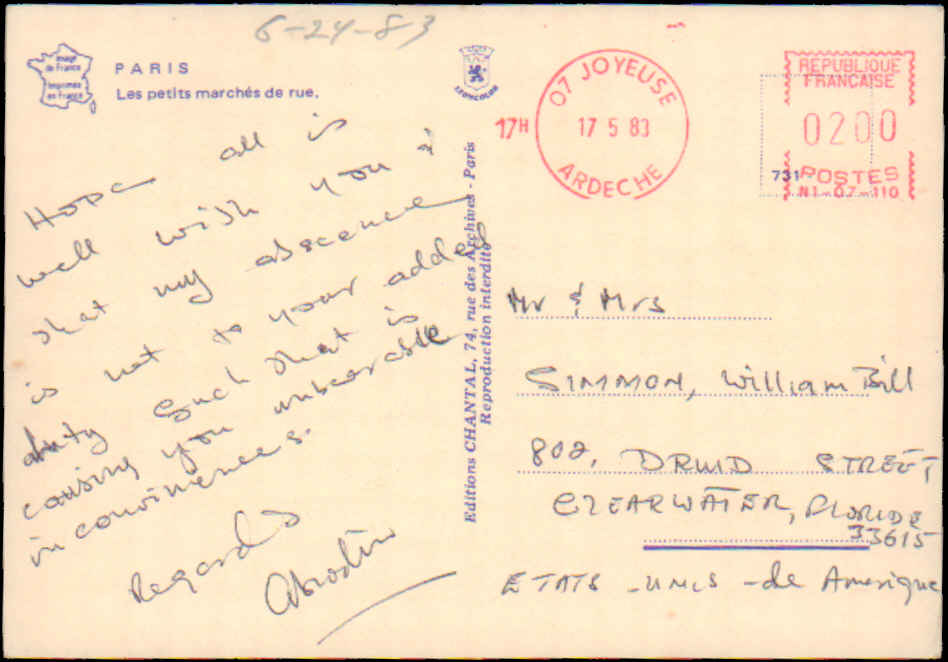 6-24-83
Image
de France
Imprimée
en France
PARIS
Les petits marchés de rue.
LYONCOLOR
Hope all is
well wish you &
that my abscence
is not to your added
duty such that is
causing you unbearable
inconviniences.
Regards
Editions CHANTAL, 74, rue des Archives - Paris
Reproduction interdite
17H
07 JOYEUSE
17 5 83
ARDECHE
REPUBLIQUE
FRANCAISE
0200
731
POSTES
N1-07-110
Mr & Mrs
SIMMON, William Bill
802, DRUID STREET
CLEARWATER, FLORIDE
33615
ETATS-UNIS-de Amerique